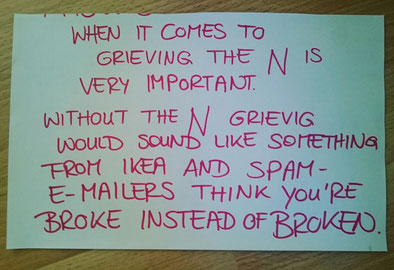 WHEN IT COMES TO
GRIEVING THE N IS
VERY IMPORTANT.
WITHOUT THE N GRIEVIG
WOULD SOUND LIKE SOMETHING
FROM IKEA AND SPAM-
E-MAILERS THINK YOU'RE
BROKE INSTEAD OF BROKEN.